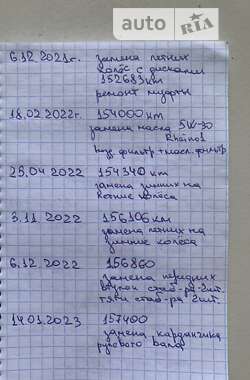 auto RIA
6.12.2021г. замена летних
колёс с дисками
152683км
ремонт муфты
18.02.2022г. 154000км
замена масла 5W-30
Rheinol
возд фильтр + масл. фильтр
25.04 2022 154340км
замена зимних на
летние колёса
3.11 2022 156106км
замена летних на
зимние колёса
6.12.2022 156860
замена передних
втулок стаб-ра-2шт.
тяги стаб-ра 2шт.
14.01.2023 157400
замена карданчика
рулевого вала